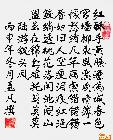 红酥手黄縢酒满城春色宫
墙柳东风恶欢情薄一怀愁
绪几年离索错错错春
如旧人空瘦泪痕红浥鲛
绡透桃花落闲池阁山
盟虽在锦书难托莫莫莫
陆游钗头凤
丙申年冬月